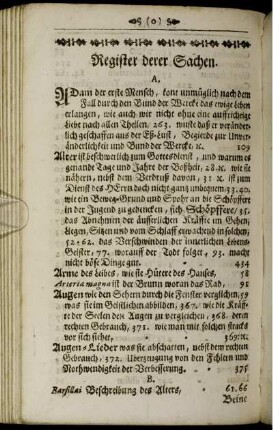 (o)
Register derer Sachen.
A.
Adam der erste Mensch, konte unmüglich nach dem
Fall durch den Bund der Wercke das ewige Leben
erlangen, wie auch wir nicht ohne eine aufrichtige
Liebe nach allen Theilen. 263. wurde daß er veränder-
lich geschaffen aus der Eß-Lust, Begierde zur Unver-
änderlichkeit und Bund der Wercke. ꝛc. 109
Alter ist beschwerlich zum Gottesdienst, und warum es
genante Tage und Jahre der Boßheit, 28. ꝛc. wie sie
nähern, nebst dem Verdruß davon, 31. ꝛc. ist zum
Dienst des HErrn doch nicht gantz unbequem. 33. 40.
wie ein Beweg-Grund und Sporn an die Schöpffer
in der Jugend zu gedencken, sich Schöpffer, 35.
das Abnehmen der äusserlichen Kräffte im Gehen,
Liegen, Sitzen und vom Schlaff erwachend in solchen,
52. 62. das Verschwinden der innerlichen Lebens-
Geister, 77. worauf der Tod folget, 93. macht
nicht böse Dinge gut. 434
Arme des Leibes, wie sie Hütere des Hauses, 58
Arteria magna ist der Brunn woran das Rad, 95
Augen wie den Sehern durch die Fenster verglichen, 59
was sie im Geistlichen abbilden, 367. wie die Kräf-
te der Seelen den Augen zu vergleichen, 368. deren
rechten Gebrauch, 371. wie man mit solchen starcks
vor sich siehet. 369. ꝛc.
Augen-Lieder was sie abschatten, nebst dem rechten
Gebrauch, 372. Uberzeugung von den Fehlern und
Nothwendigkeit der Verbesserung. 375
B.
Barsillai Beschreibung des Alters, 61. 66
Beine